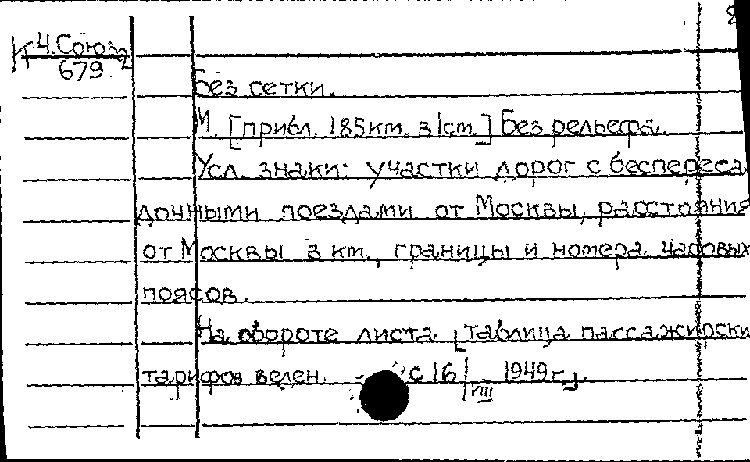 К 4.Союз-2
679
Без сетки.
М. [прибл. 185км. в 1см.] Без рельефа.
Усл. знаки: участки дорог с беспереса
дочными поездами от Москвы, расстояния
от Москвы в км., границы и номера часовых
поясов.
На обороте листа [таблица пассажирски
тарифов введен. с 16/VIII 1949г.].